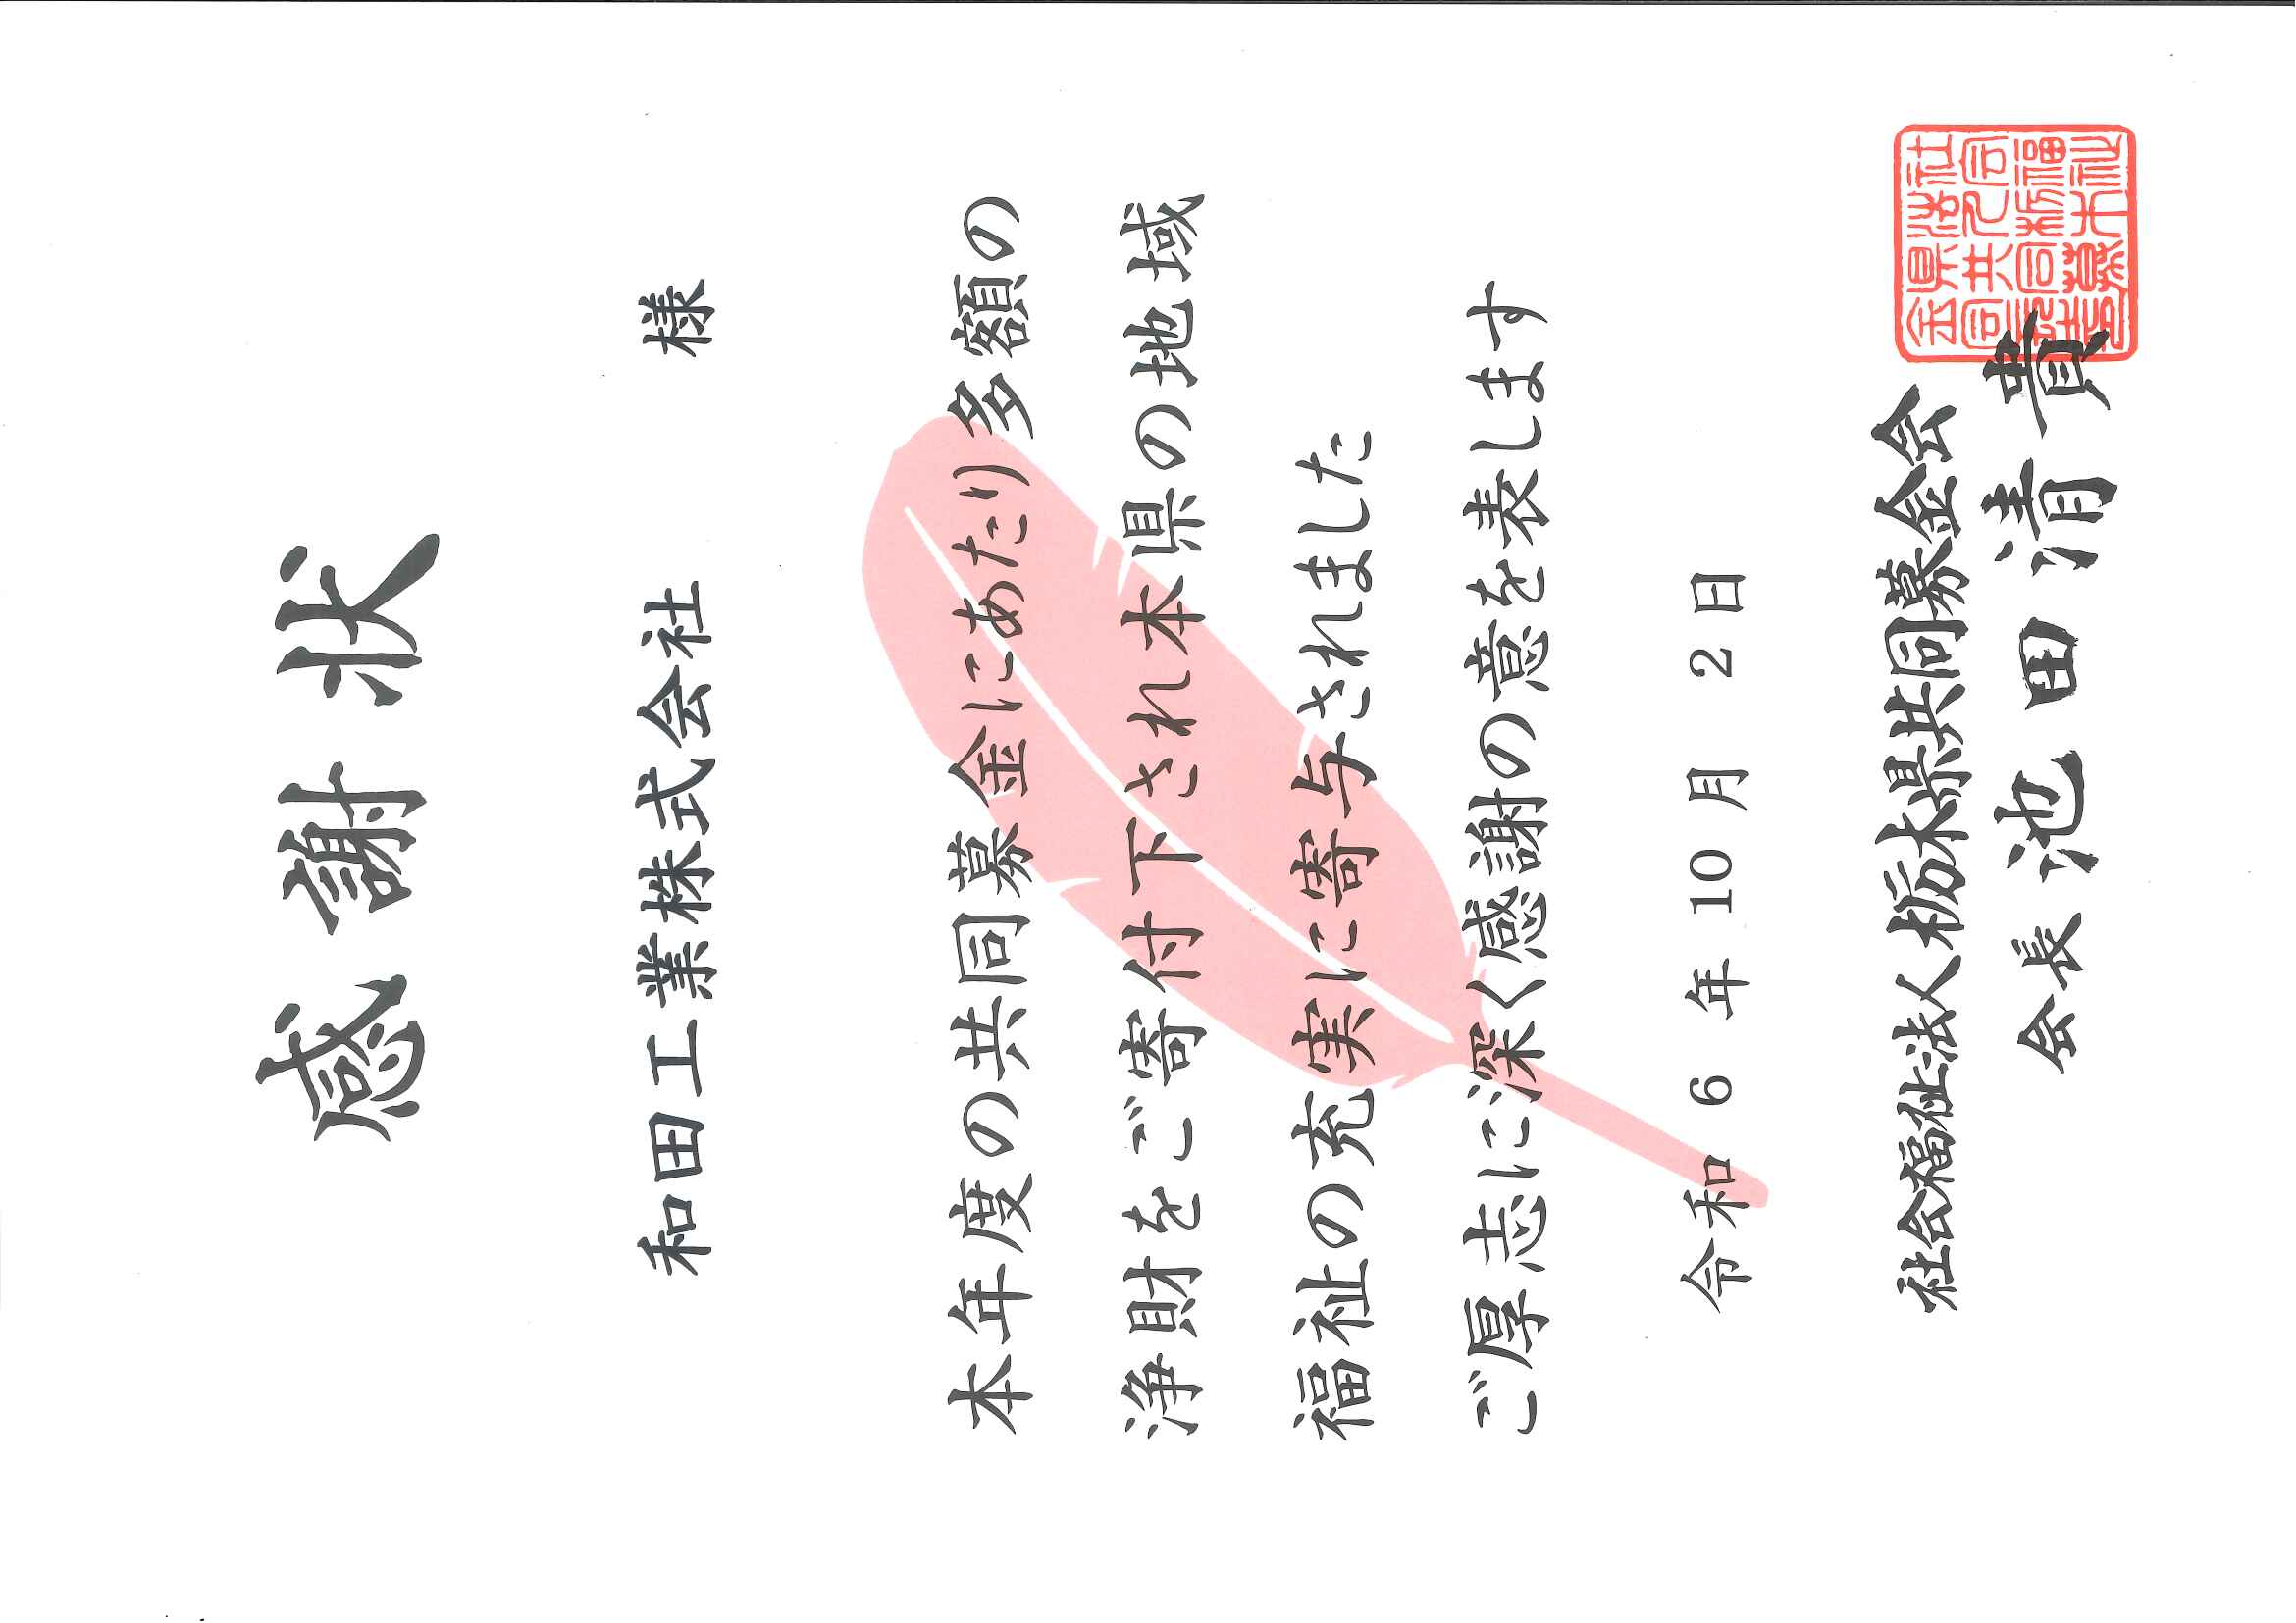 感謝状
和田工業株式会社 様
本年度の共同募金にあたり多額の
浄財をご寄付下され本県の地域
福祉の充実に寄与されました
ご厚志に深く感謝の意を表します
令和 6 年 10 月 2 日
社会福祉法人栃木県共同募金会
会長 池田清貴